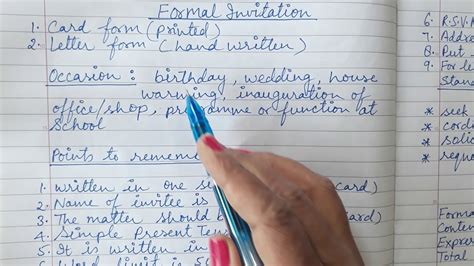 Formal Invitation
1. Card form (printed)
2. Letter form (hand written)
Occasion : birthday, wedding, house
warming, inauguration of
office/shop, programme or function at
School
Points to remem
1. Written in one se card)
2. Name of invitee is
3. The matter should b
4. Simple Present Ten
5. It is written in
6. Word limit is 5
6. R.S.V.P
7. Addre
8. Put
9. For le
Stan
* seek
* cord
* solic
* reque
Forma
Conten
Expres
Total